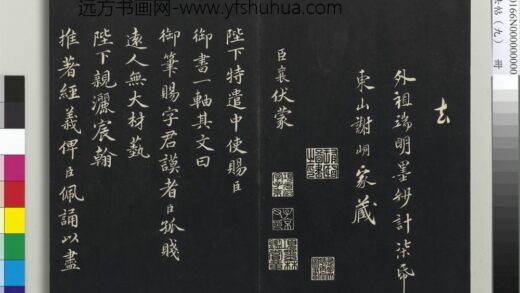 远方书画网- www.yfshuhua.com
0166N000000000
帖（九） 冊
去
外祖端明墨妙計柒帋
東山謝峒家藏
臣襄伏蒙
陛下特遣中使賜臣
御書一軸其文曰
御筆賜字君謨者臣孤賤
遠人無大材藝
陛下親灑宸翰
推著經義俾臣佩誦以盡